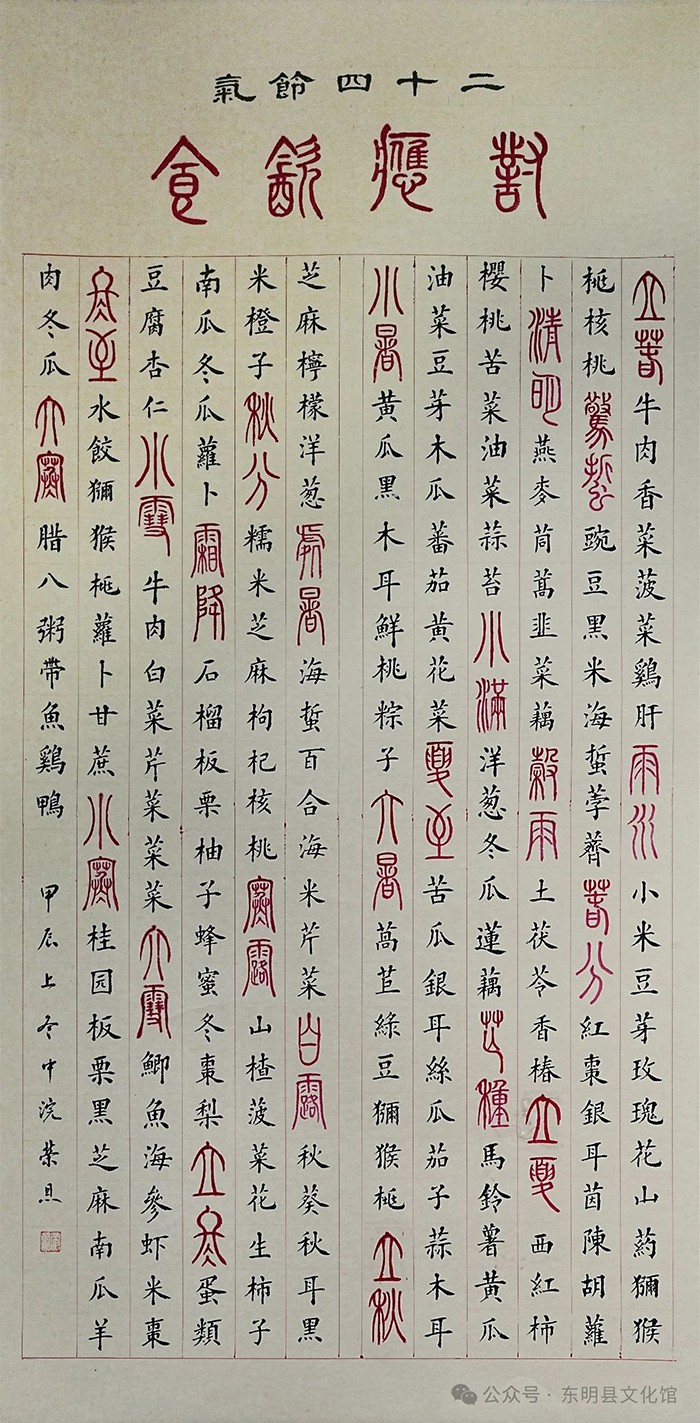 二十四節氣
對應飲食
立春牛肉香菜菠菜鷄肝雨水小米豆芽玫瑰花山葯獼猴
桃核桃驚蟄豌豆黑米海蜇荸薺春分紅棗銀耳茵陳胡蘿
卜清明燕麥茼蒿韭菜藕穀雨土茯苓香椿立夏西紅柿
櫻桃苦菜油菜蒜苔小滿洋葱冬瓜蓮藕芒種馬鈴薯黄瓜
油菜豆芽木瓜蕃茄黄花菜夏至苦瓜銀耳絲瓜茄子蒜木耳
小暑黄瓜黑木耳鮮桃粽子大暑萵苣綠豆獼猴桃立秋
芝麻檸檬洋葱處暑海蜇百合海米芹菜白露秋葵秋耳黑
米橙子秋分糯米芝麻枸杞核桃寒露山楂菠菜花生柿子
南瓜冬瓜蘿卜霜降石榴板栗柚子蜂蜜冬棗梨立冬蛋類
豆腐杏仁小雪牛肉白菜芹菜菜菜大雪鯽魚海參虾米棗
冬至水餃獼猴桃蘿卜甘蔗小寒桂园板栗黑芝麻南瓜羊
肉冬瓜大寒腊八粥帶魚鷄鴨
甲辰上冬中浣荣恩
公众号·东明县文化馆